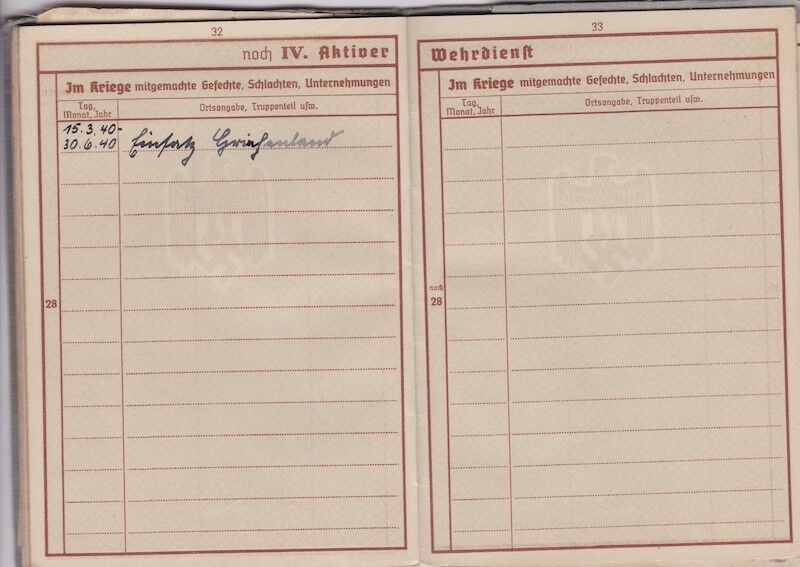 32
noch IV. Aktiver
Im Kriege mitgemachte Gefechte, Schlachten, Unternehmungen
Tag, Monat, Jahr
Ortsangabe, Truppenteil usw.
15.3.40-
30.6.40 Einsatz Griechenland
28
33
Wehrdienst
Im Kriege mitgemachte Gefechte, Schlachten, Unternehmungen
Tag, Monat, Jahr
Ortsangabe, Truppenteil usw.
noch
28